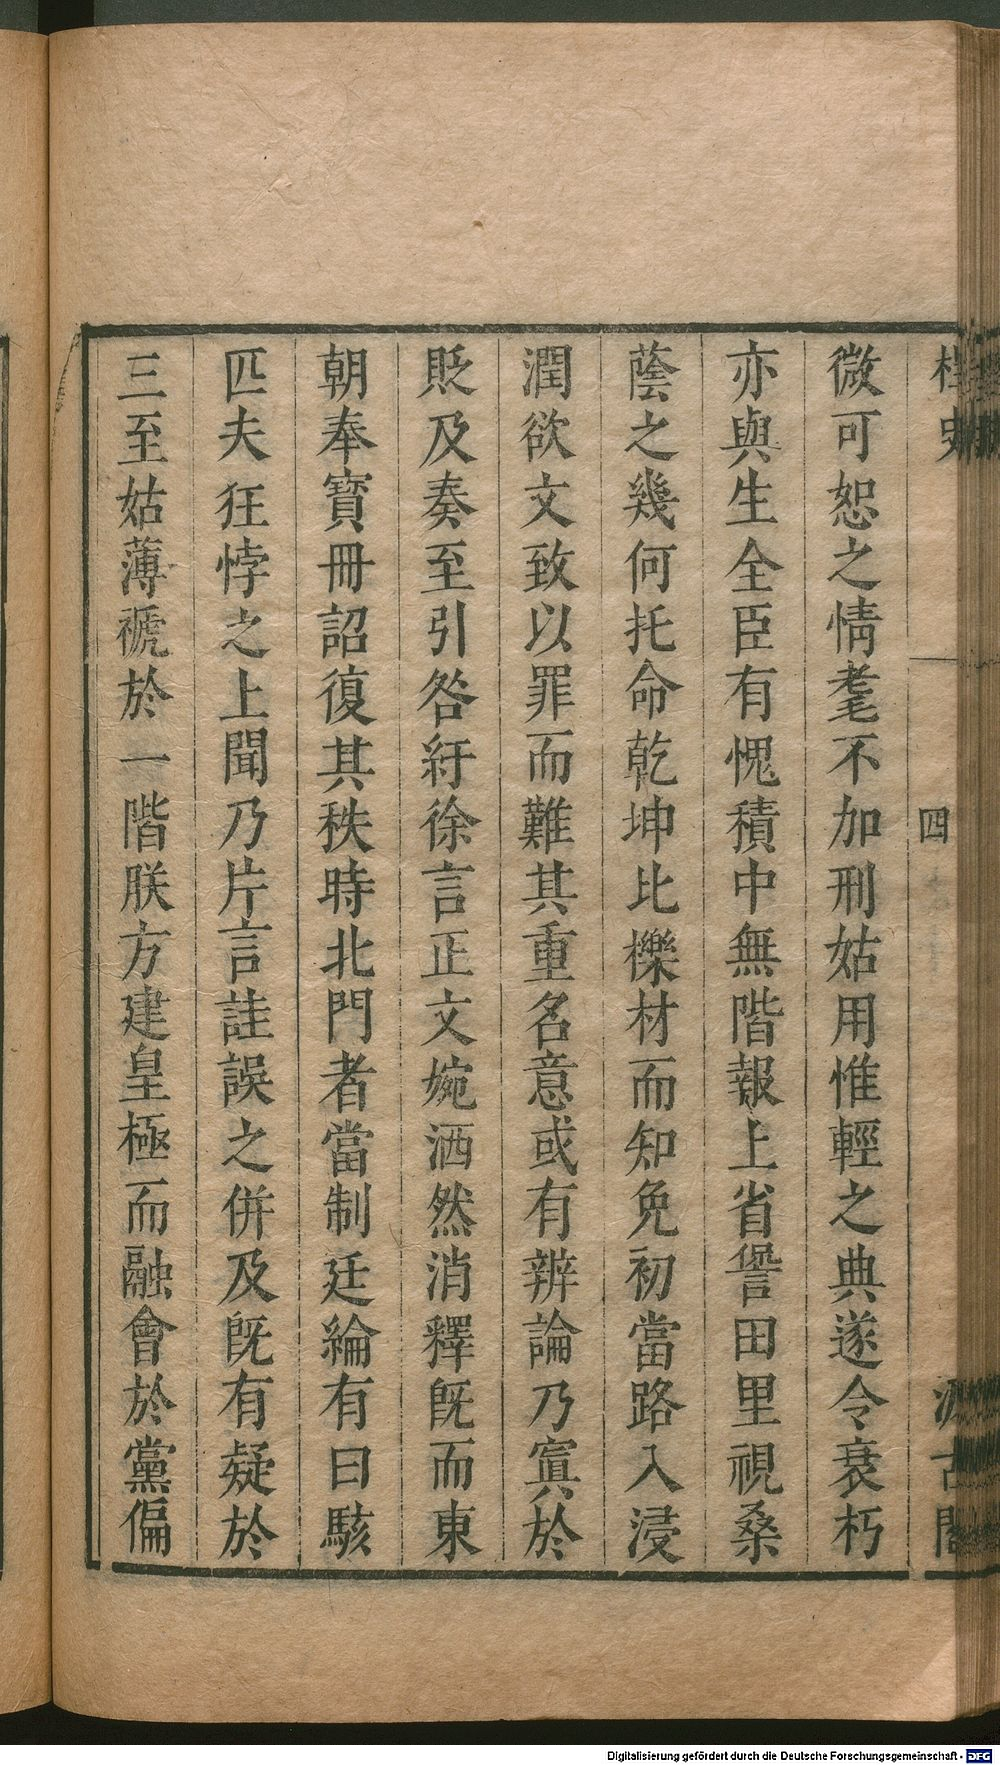 桯史
四
汲古閣
微可恕之情耄不加刑姑用惟輕之典遂令衰朽
亦與生全臣有愧積中無階報上省愆田里視桑
蔭之幾何托命乾坤比櫟材而知免初當路入浸
潤欲文致以罪而難其重名意或有辨論乃寘於
貶及奏至引咎紆徐言正文婉洒然消釋旣而東
朝奉寶冊詔復其秩時北門者當制廷綸有曰駭
匹夫狂悖之上聞乃片言詿誤之併及旣有疑於
三至姑薄褫於一階朕方建皇極而融會於黨偏
Digitalisierung gefördert durch die Deutsche Forschungsgemeinschaft - DFG